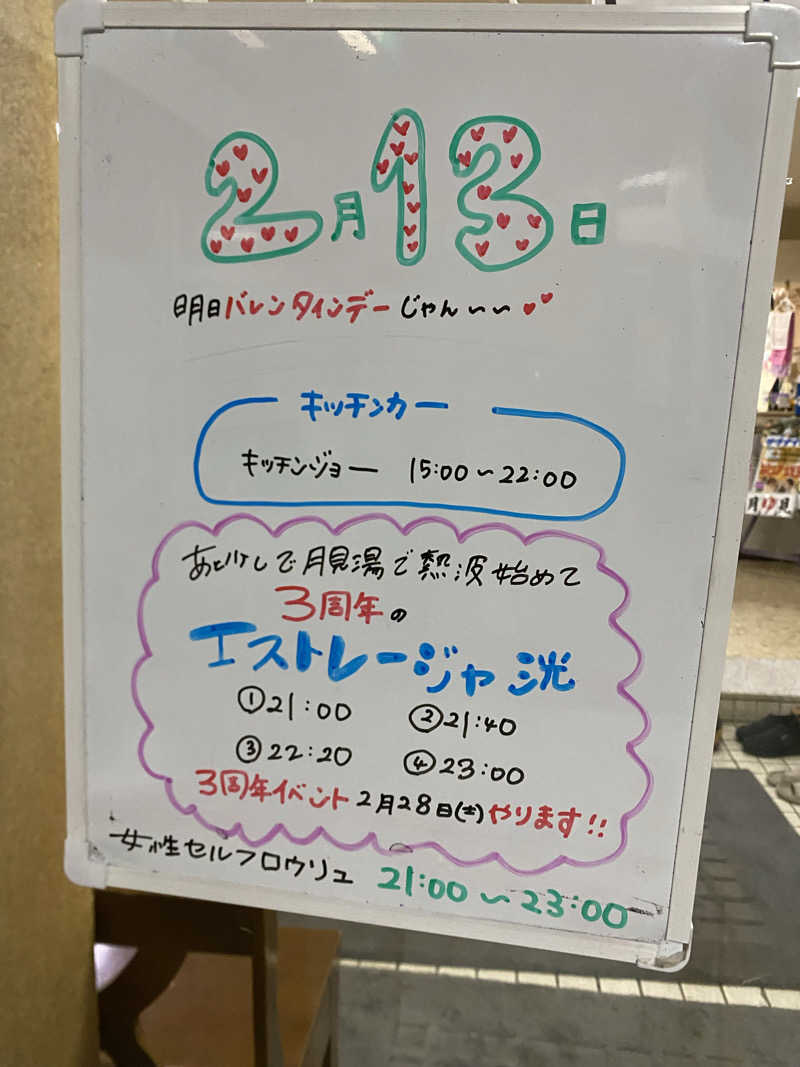 2月13日
明日バレンタインデーじゃんぃぃ
キッチンカー
キッチンジョー 15:00～22:00
あといけしで月見湯で熱波始めて
3周年の
エストレージャ洸
①21:00 ②21:40
③22:20 ④23:00
3周年イベント2月28日(土)やります!!
女性セルフロウリュ 21:00～23:00